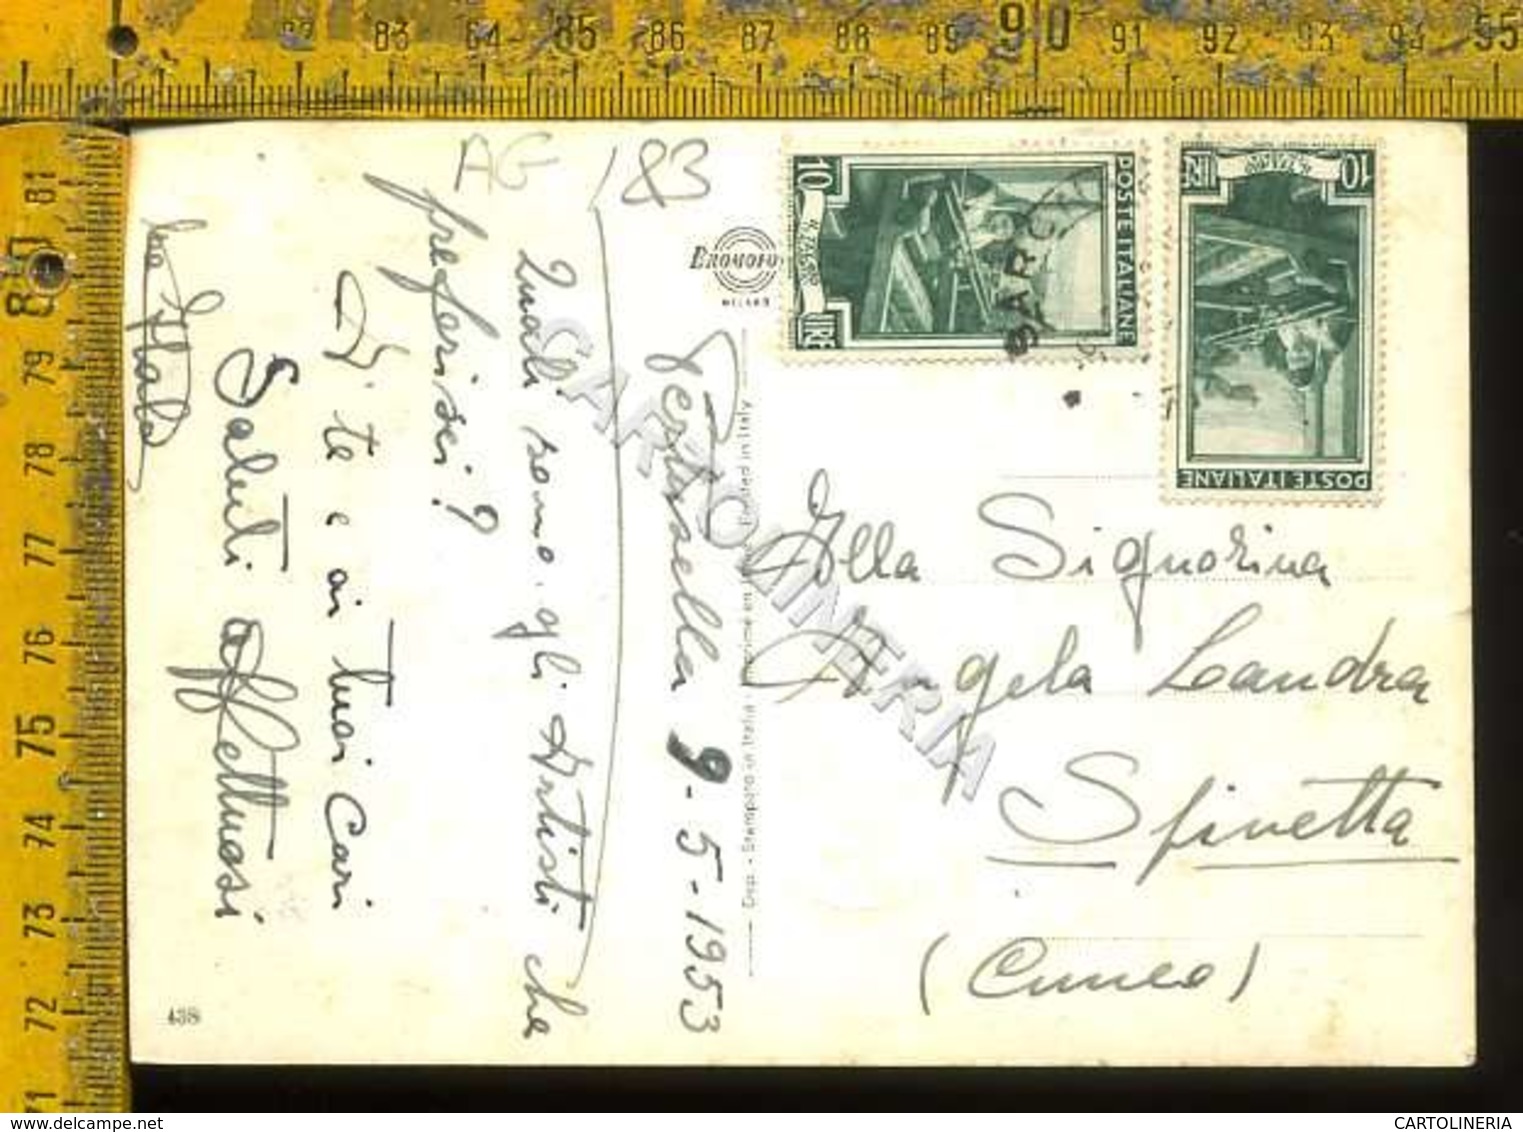 82 83 84 85 86 87 88 89 90 91 92 93 94 95
81
80
79
78
77
76
75
74
73
72
71
AG 183
BROMOFO
MILANO
10 LIRE
POSTE ITALIANE
10 LIRE
POSTE ITALIANE
BARG
9-5-1953
Quali sono gli Artisti che
preferisci?
A te e ai tuoi Cari
Saluti affettuosi
Italo
438
Dep. - Stampato in Italia - Imprimé en - Printed in Italy
Alla Signorina
Angela Landra
Spinetta
(Cuneo)
CARTOLINERIA
CARTOLINERIA